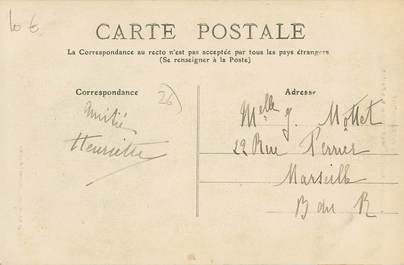 10 €
CARTE POSTALE
La Correspondance au recto n'est pas acceptée par tous les pays étrangers
(Se renseigner à la Poste)
Correspondance
26
Amitié
Henriette
Adresse
Melle g. Mottet
22 Rue Perrier
Marseille
B du R